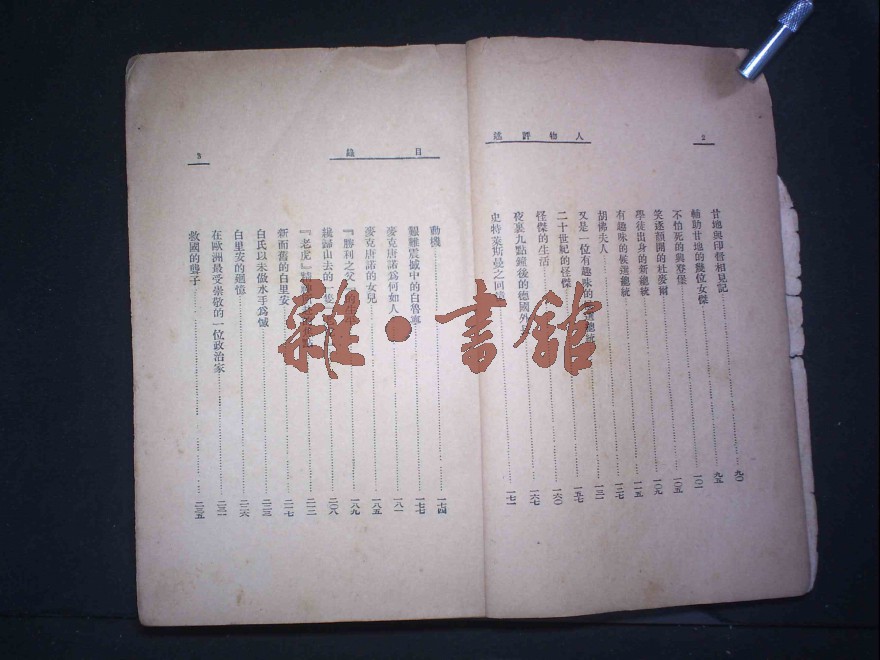 人物評述
2
甘地與印督相見記 九〇
輔助甘地的幾位女傑 九五
不怕死的興登堡 一〇一
笑逐顏開的杜麥爾 一〇五
學徒出身的新總統 一〇九
有趣味的候選總統 一一五
胡佛夫人 一二七
又是一位有趣味的 總統 一三一
二十世紀的怪傑 一五七
怪傑的生活 一六〇
夜裏九點鐘後的德國外 一六七
史特萊斯曼之回憶 一七一
目錄
3
動機 一七四
艱難震撼中的白魯寧 一七七
麥克唐諾爲何如人 一八一
麥克唐諾的女兒 一八五
『勝利之父』 一八九
歸山去的一隻 二〇八
『老虎』 二一二
新而舊的白里安 二一七
白氏以未做水手爲憾 二二三
白里安的遺憶 二二六
在歐洲最受崇敬的一位政治家 二三一
救國的聾子 二三五
雜·書館